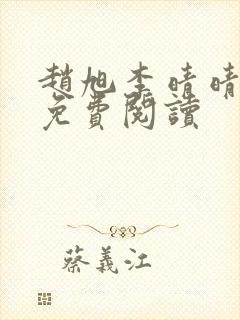 趙旭李晴晴
免費閱讀
蔡義江